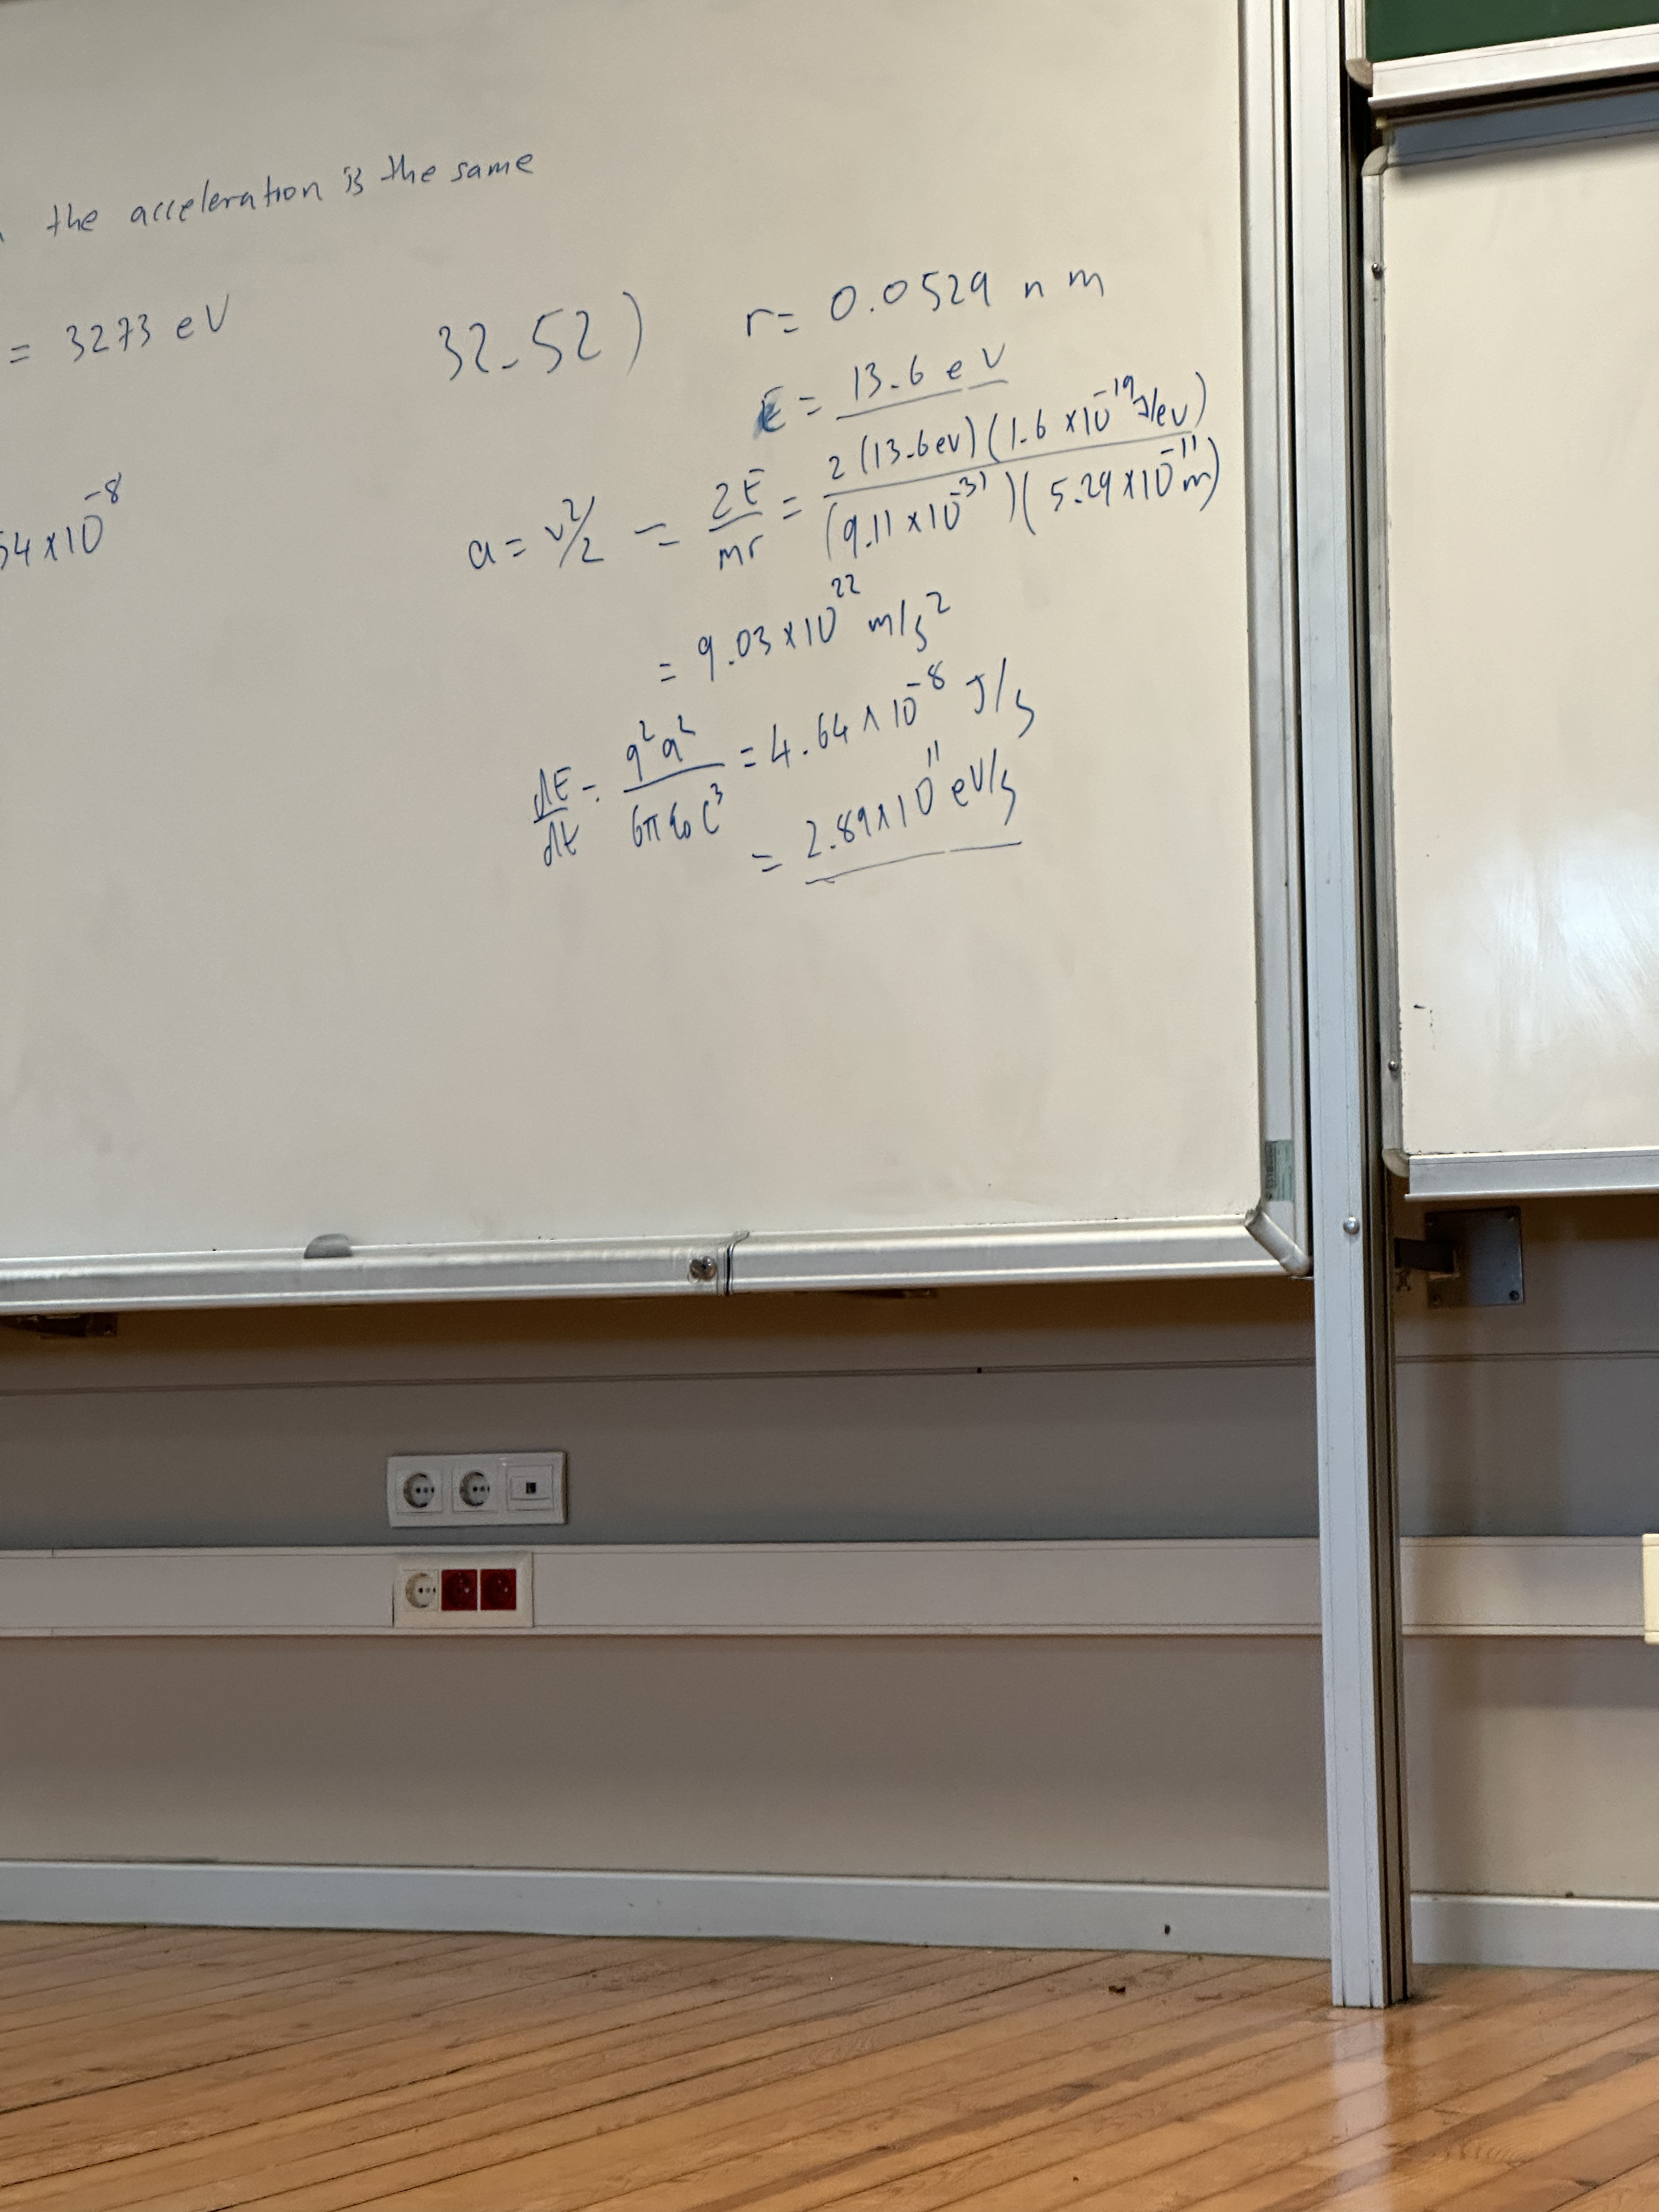 the acceleration is the same
= 3273 eV
54 x 10^-8
32-52)
r = 0.0529 n m
E = 13.6 eV
a = v^2/2 = 2E/mr = 2(13.6 eV)(1.6 x 10^-19 J/eV)/(9.11 x 10^-31)(5.29 x 10^-11 m)
= 9.03 x 10^22 m/s^2
dE/dt = q^2a^2/6πε0c^3 = 4.64 x 10^-8 J/s
= 2.89 x 10^11 eV/s